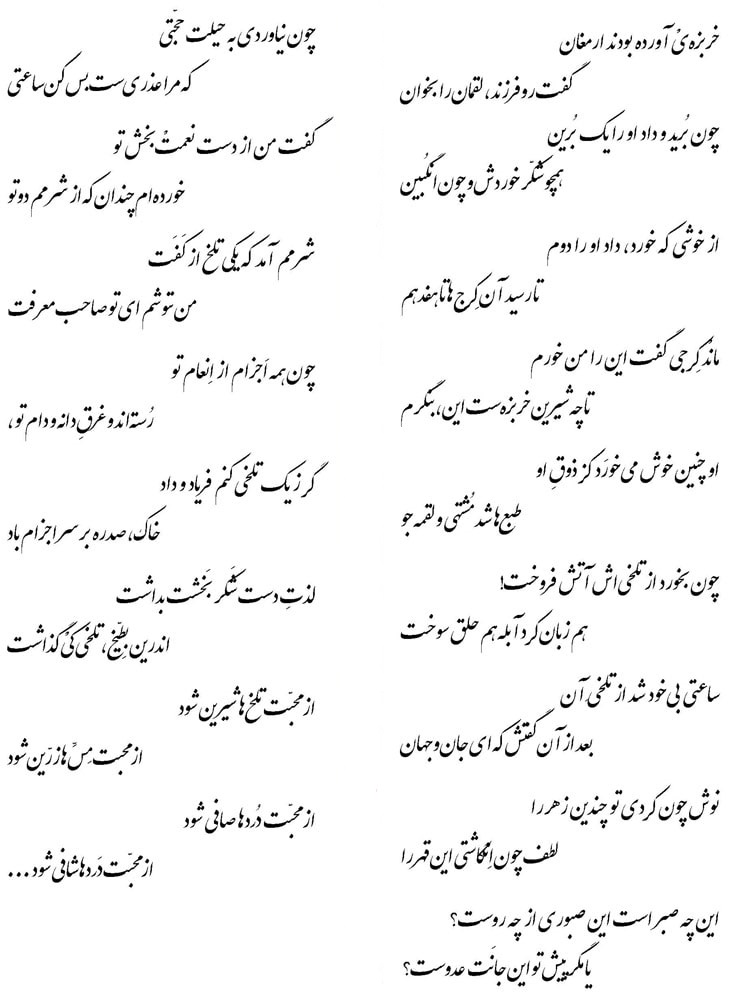 خربزه‌یْ آورده بودند ارمغان
گفت رو فرزند، لقمان را بخوان
چون بُرید و داد او را یک بُرین
همچو شکّر خوردش و چون انگُبین
از خوشی که خورد، داد او را دوم
تا رسید آن کِرج ها تا هفدهم
ماندْ کِرجی گفت این را من خورم
تا چه شیرین خربزه ست این، بنگرم
او چنین خوش می خورَد کز ذوقِ او
طبع ها شد مُشتهی و لقمه جو
چون بخورد از تلخی اش آتش فروخت!
هم زبان کرد آبله هم حلق سوخت
ساعتی بی خود شد از تلخیِ آن
بعد از آن گفتش که ای جان و جهان
نوش چون کردی تو چندین زهر را
لطف چون اِنگاشتی این قهر را
این چه صبر است این صبوری از چه روست؟
یا مگر پیش تو این جانَت عدوست؟
چون نیاوردی به حیلت حجّتی
که مرا عذری ست بس کن ساعتی
گفت من از دست نعمتْ بخش تو
خورده ام چندان که از شرمم دوتو
شرمم آمد که یکی تلخ از کَفَت
من ننوشم ای تو صاحب معرفت
چون همه اَجزام از اِنعام تو
رُسته اند و غرقِ دانه و دام تو،
گر ز یک تلخی کنم فریاد و داد
خاک، صد ره بر سر اجزام باد
لذتِ دست شَکر بَخشت بداشت
اندرین بِطّیخ، تلخی کَیْ گذاشت
از محبّت تلخ ها شیرین شود
از محبت مِسْ ها زرّین شود
از محبّت دُردها صافی شود
از محبّت دَردها شافی شود ...